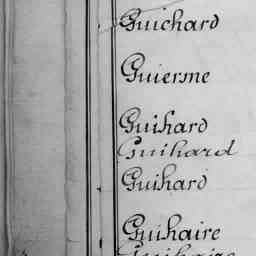 Guichard
Guierme
Guihard
Guihard
Guihard
Guihaire
Guihaire